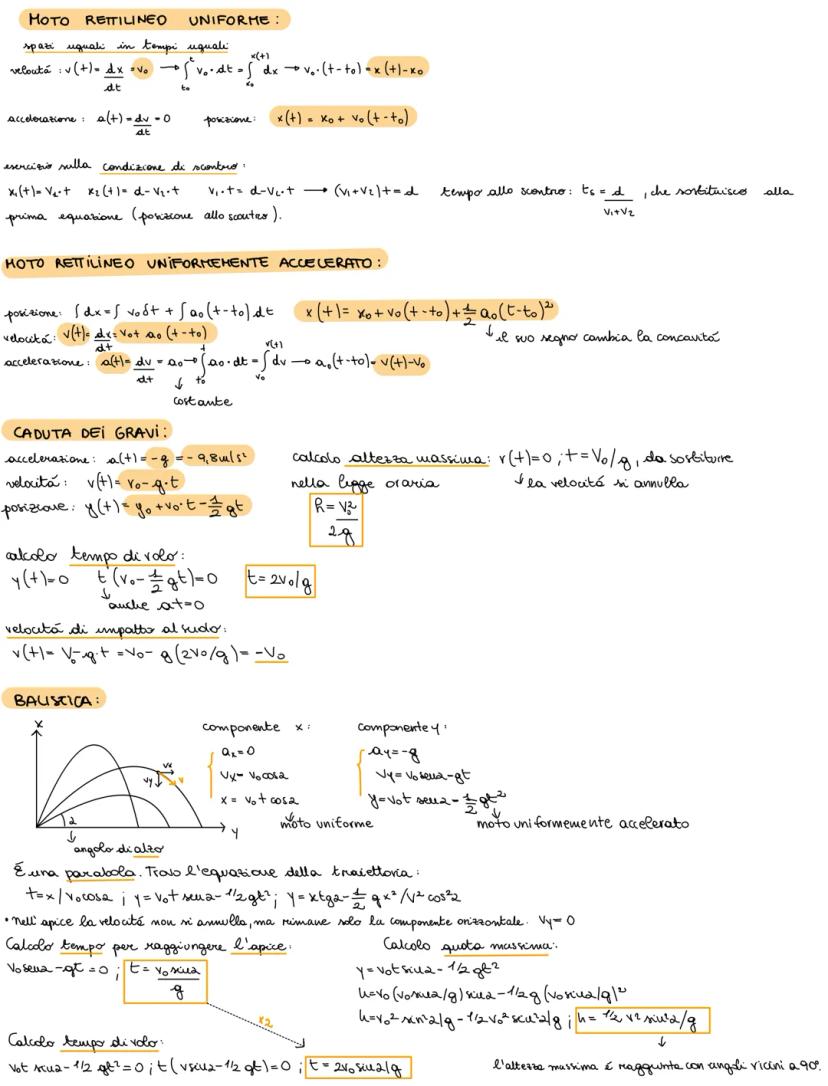 MOTO RETTILINEO UNIFORME:
spazi uguali in tempi uguali
velocità: v(t)= dx/dt = v₀ → ∫_{t₀}^{t} v₀·dt = ∫_{x₀}^{x(t)} dx → v₀·(t-t₀) = x(t)-x₀
accelerazione: a(t)= dv/dt = 0 posizione: x(t) = x₀ + v₀(t-t₀)
esercizio sulla condizione di scontro:
x₁(t)= V₁·t x₂(t)= d-V₂·t V₁·t = d-V₂·t → (V₁+V₂)t = d tempo allo scontro: tₛ = d/(V₁+V₂), che sostituisco alla
prima equazione (posizione allo scontro).
MOTO RETTILINEO UNIFORMEMENTE ACCELERATO:
posizione: ∫dx=∫ v₀δt + ∫a₀(t-t₀)dt x(t)= x₀+v₀(t-t₀)+½ a₀(t-t₀)²
velocità: v(t)= dx/dt = v₀+ a₀(t-t₀) ↓ il suo segno cambia la concavità
accelerazione: a(t)= dv/dt = a₀ → ∫_{t₀}^{t} a₀·dt = ∫_{v₀}^{v(t)} dv → a₀(t-t₀) = v(t)-v₀
↓
costante
CADUTA DEI GRAVI:
accelerazione: a(t)= -g = -9,8m/s²
velocità: v(t)= v₀-g·t
posizione: y(t)= y₀+v₀·t-½ gt
calcolo altezza massima: v(t)=0 ; t=V₀/g, da sostituire
nella legge oraria ↓ la velocità si annulla
h = v₀²/2g
calcolo tempo di volo:
y(t)=0 t(v₀-½ gt)=0 t=2v₀/g
↓
anche a t=0
velocità di impatto al suolo:
v(t)= V₀-g·t = v₀- g(2v₀/g)= -V₀
BALISTICA:
x
vx
vy
v
2
y
↓
angolo di alzo
componente x:
aₓ=0
vₓ= v₀cos2
x = v₀t cos2
↓
moto uniforme
componente y:
ay=-g
vy= v₀sen2-gt
y=v₀t sen2-½ gt²
↓
moto uniformemente accelerato
É una parabola. Trovo l'equazione della traiettoria:
t=x/v₀cos2 ; y=v₀t sen2-1/2 gt² ; y=xtg2-½ gx²/V² cos²2
• Nell'apice la velocità non si annulla, ma rimane solo la componente orizzontale. Vy=0
Calcolo tempo per raggiungere l'apice:
v₀sen2-gt=0 ; t= v₀ sin2/g
x2
Calcolo quota massima:
y=v₀t sin2-1/2 gt²
h=v₀(v₀sin2/g) sin2-1/2 g(v₀sin2/g)²
h=v₀² sin²2/g-1/2 v₀² sin²2/g ; h= 1/2 v² sin²2/g
↓
l'altezza massima é raggiunta con angoli vicini a 90°.
Calcolo tempo di volo:
v₀t sin2-1/2 gt²=0 ; t(vsin2-1/2 gt)=0 ; t=2v₀ sin2/g